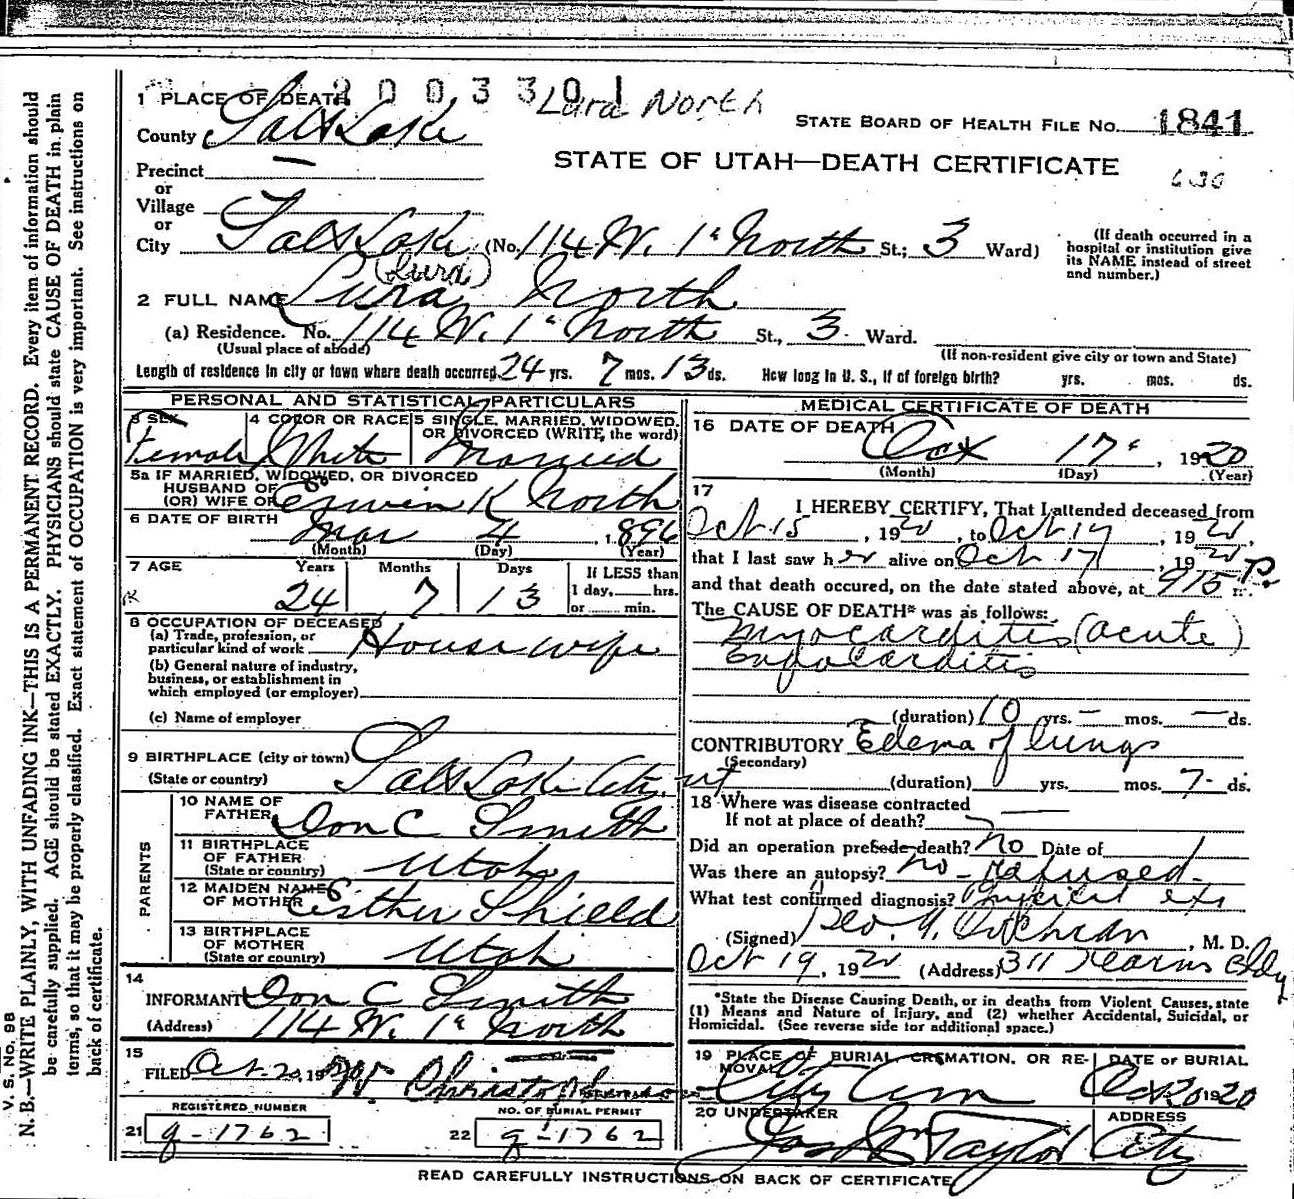 2003301 Lura North
1 PLACE OF DEATH
County Salt Lake
STATE BOARD OF HEALTH FILE No. 1841
STATE OF UTAH—DEATH CERTIFICATE
630
Precinct —
or
Village
or
City Salt Lake (No. 114 W. 1st North St.; 3 Ward)
(If death occurred in a hospital or institution give its NAME instead of street and number.)
(Lura)
2 FULL NAME Lura North
(a) Residence. No. 114 W. 1st North St., 3 Ward.
(Usual place of abode)
(If non-resident give city or town and State)
Length of residence in city or town where death occurred 24 yrs. 7 mos. 13 ds. How long in U. S., if of foreign birth? yrs. mos. ds.
PERSONAL AND STATISTICAL PARTICULARS
3 SEX Female
4 COLOR OR RACE White
5 SINGLE, MARRIED, WIDOWED, OR DIVORCED (WRITE, the word) Married
5a IF MARRIED, WIDOWED, OR DIVORCED
HUSBAND OF
(OR) WIFE OF Erwin K North
6 DATE OF BIRTH Mar 4, 1896
(Month) (Day) (Year)
7 AGE Years Months Days If LESS than
24 7 13 1 day, hrs.
or min.
8 OCCUPATION OF DECEASED
(a) Trade, profession, or
particular kind of work House wife
(b) General nature of industry,
business, or establishment in
which employed (or employer)
(c) Name of employer
9 BIRTHPLACE (city or town)
(State or country) Salt Lake City, ut
PARENTS
10 NAME OF
FATHER Don C Smith
11 BIRTHPLACE
OF FATHER
(State or country) Utah
12 MAIDEN NAME
OF MOTHER Esther Shield
13 BIRTHPLACE
OF MOTHER
(State or country) Utah
14
INFORMANT Don C Smith
(Address) 114 W. 1st North
15
FILED Oct. 20, 1920
REGISTERED NUMBER
21 g-1762
NO. OF BURIAL PERMIT
22 g-1762
MEDICAL CERTIFICATE OF DEATH
16 DATE OF DEATH
Oct 17, 1920
(Month) (Day) (Year)
17
I HEREBY CERTIFY, That I attended deceased from
Oct 15, 1920, to Oct 17, 1920,
that I last saw her alive on Oct 17, 1920
and that death occured, on the date stated above, at 915 P. m.
The CAUSE OF DEATH* was as follows:
Myocarditis (acute)
Endocarditis
(duration) 10 yrs. – mos. — ds.
CONTRIBUTORY Edema of lungs
(Secondary)
(duration) yrs. mos. 7 ds.
18 Where was disease contracted
If not at place of death?
Did an operation precede death? No Date of
Was there an autopsy? No - Refused -
What test confirmed diagnosis? Physical exs
(Signed) Geo. Cochran, M. D.
Oct 19, 1920 (Address) 311 Kearns Bldg
*State the Disease Causing Death, or in deaths from Violent Causes, state
(1) Means and Nature of Injury, and (2) whether Accidental, Suicidal, or
Homicidal. (See reverse side for additional space.)
19 PLACE OF BURIAL, CREMATION, OR REMOVAL
City Cem
DATE OF BURIAL
Oct 20 1920
20 UNDERTAKER
Jos Wm Taylor
ADDRESS
City
READ CAREFULLY INSTRUCTIONS ON BACK OF CERTIFICATE
V. S. No. 98
N. B.—WRITE PLAINLY, WITH UNFADING INK—THIS IS A PERMANENT RECORD. Every item of information should
be carefully supplied. AGE should be stated EXACTLY. PHYSICIANS should state CAUSE OF DEATH in plain
terms, so that it may be properly classified. Exact statement of OCCUPATION is very important. See instructions on
back of certificate.